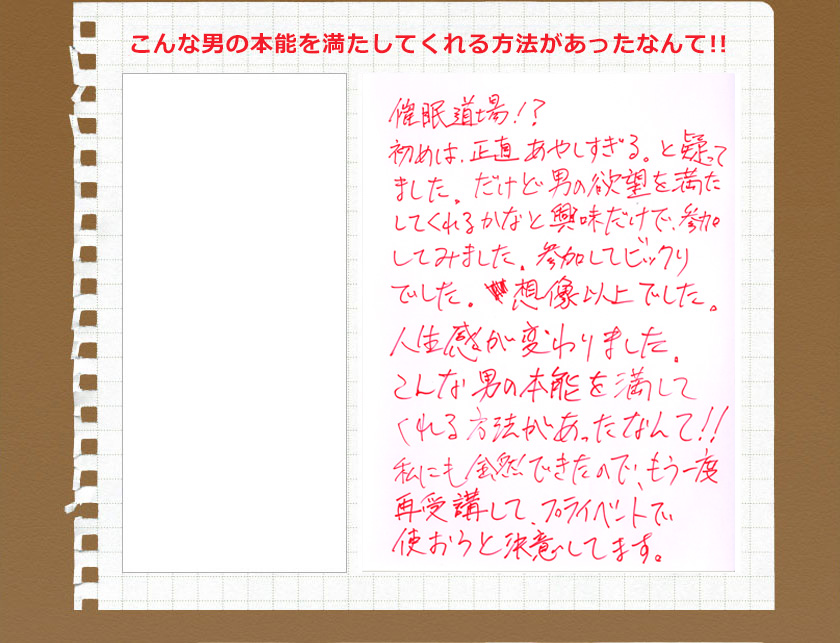 こんな男の本能を満たしてくれる方法があったなんて!!
催眠道場!?
初めは、正直あやしすぎる。と疑って
ました。だけど男の欲望を満た
してくれるかなと興味だけで、参加
してみました。参加してビックリ
でした。想像以上でした。
人生感が変わりました。
こんな男の本能を満して
くれる方法があったなんて!!
私にも全然できたので、もう一度
再受講して、プライベントで
使おうと決意してます。